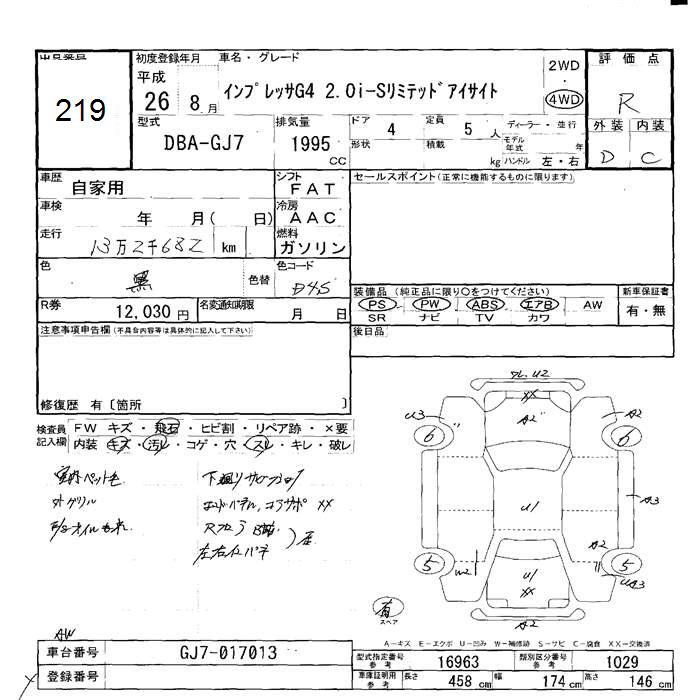 出品番号
219
初度登録年月
平成
26年8月
車名・グレード
インプレッサG4 2.0i-Sリミテッドアイサイト
2WD
4WD
評価点
R
外装 内装
D C
型式
DBA-GJ7
排気量
1995 CC
ドア 4
定員 5人
ディーラー・並行
形状
積載 kg
モデル年式 年
ハンドル 左・右
車歴 自家用
シフト FAT
セールスポイント(正常に機能するものに限ります)
車検 年 月( 日)
冷房 AAC
走行 13万2千682 km
燃料 ガソリン
色 黒 色替
色コード D4S
装備品 (純正品に限り〇をつけてください)
新車保証書
PS PW ABS エアB AW
有・無
SR ナビ TV カワ
R券 12,030円
名変通知期限 月 日
後日品
注意事項申告欄(不具合内容等は具体的に記入して下さい)
修復歴 有〔箇所 〕
検査員記入欄
FW キズ・飛石・ヒビ割・リペア跡・×要
内装 キズ・汚レ・コゲ・穴・スレ・キレ・破レ
下廻り
左右
U2
XX
U3
A2
A2
6
6
U1
A3
A2
5
5
W2
U1
XX
UA3
A2
有
スペア
A-キズ E-エクボ U-凹み W-補修跡 S-サビ C-腐食 XX-交換済
AW
車台番号 GJ7-017013
登録番号
型式指定番号 参考 16963
類別区分番号 参考 1029
車庫証明用 参考 長さ 458 cm 幅 174 cm 高さ 146 cm